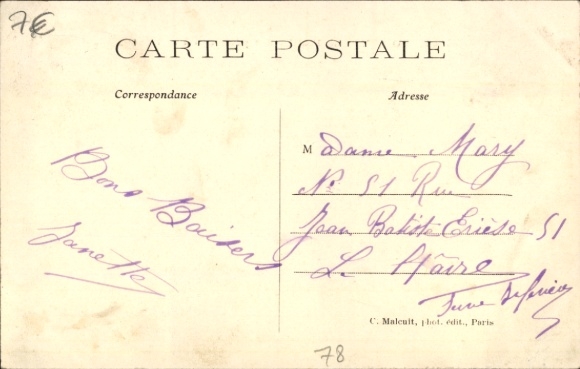 7€
CARTE POSTALE
Correspondance
Adresse
Bons Baisers
Janette
Madame Mary
N° 51 Rue
Jean Batiste Erièse 51
Le Hâvre
C. Malcuit, phot. édit., Paris
78